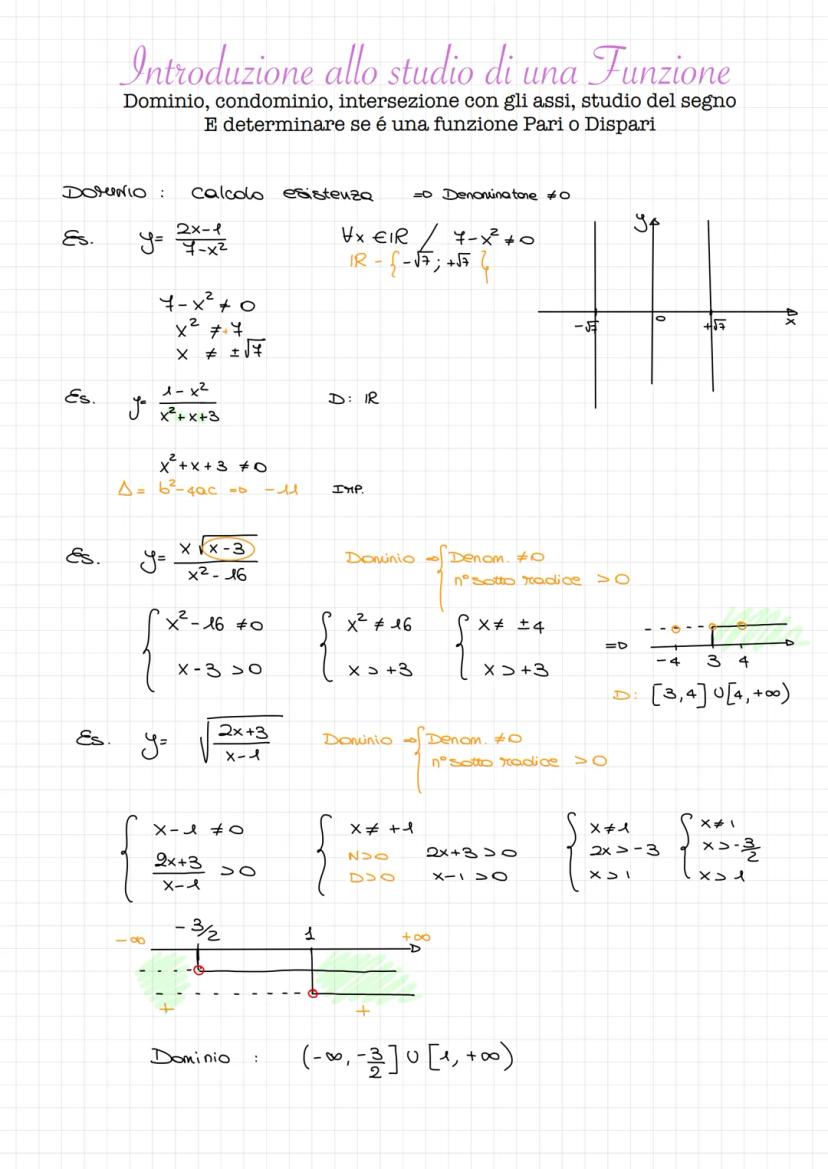 Introduzione allo studio di una Funzione
Dominio, condominio, intersezione con gli assi, studio del segno
E determinare se é una funzione Pari o Dispari
Dominio : Calcolo esistenza => Denominatore ≠0
Es. y= (2x-1)/(7-x²) ∀x ∈ IR / 7-x² ≠ 0
IR - {-√7; +√7}
7-x² ≠ 0
x² ≠ 7
x ≠ ±√7
y
-√7 0 +√7 x
Es. y= (1-x²)/(x²+x+3) D: IR
x²+x+3 ≠0
Δ= b²-4ac => -11 IMP.
Es. y= x√(x-3)/(x²-16) Dominio => { Denom. ≠0
n° sotto radice >0
{ x²-16 ≠0 { x² ≠ 16 { x≠ ±4
x-3 >0 x > +3 x > +3
=> -4 3 4
D: [3,4] ∪ [4,+∞)
Es. y= √((2x+3)/(x-1)) Dominio => { Denom. ≠0
n° sotto radice >0
{ x-1 ≠0 { x≠ +1 { x≠1 { x≠1
(2x+3)/(x-1) >0 N>0 2x+3>0 2x>-3 x>-3/2
D>0 x-1>0 x>1 x>1
-∞ -3/2 1 +∞
+ +
Dominio : (-∞, -3/2] ∪ [1, +∞)